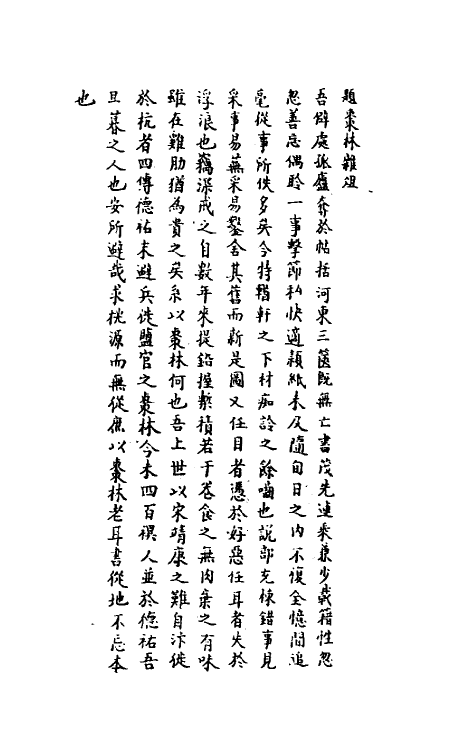 題棗林雜俎
吾僻處孤廬奪於帖括河東三篋既無亡書茂先連乘兼少載籍性忽
忽善忘偶聆一事擊節私快適穎紙未及隨旬日之內不復全憶間追
毫從事所佚多矣今特輶軒之下材痴詅之餘嗤也說部充棟錯事見
采事易蕪采易鑿舍其舊而新是圖又任目者憑於好惡任耳者失於
浮浪也竊深戒之自數年來提鉛握槧積若干卷食之無肉棄之有味
雖在雞肋猶為貴之矣系以棗林何也吾上世以宋靖康之難自汴徙
於杭者四傳德祐末避兵徙鹽官之棗林今未四百禩人並於德祐吾
旦暮之人也安所避哉求桃源而無從庶以棗林老耳書從地不忘本
也